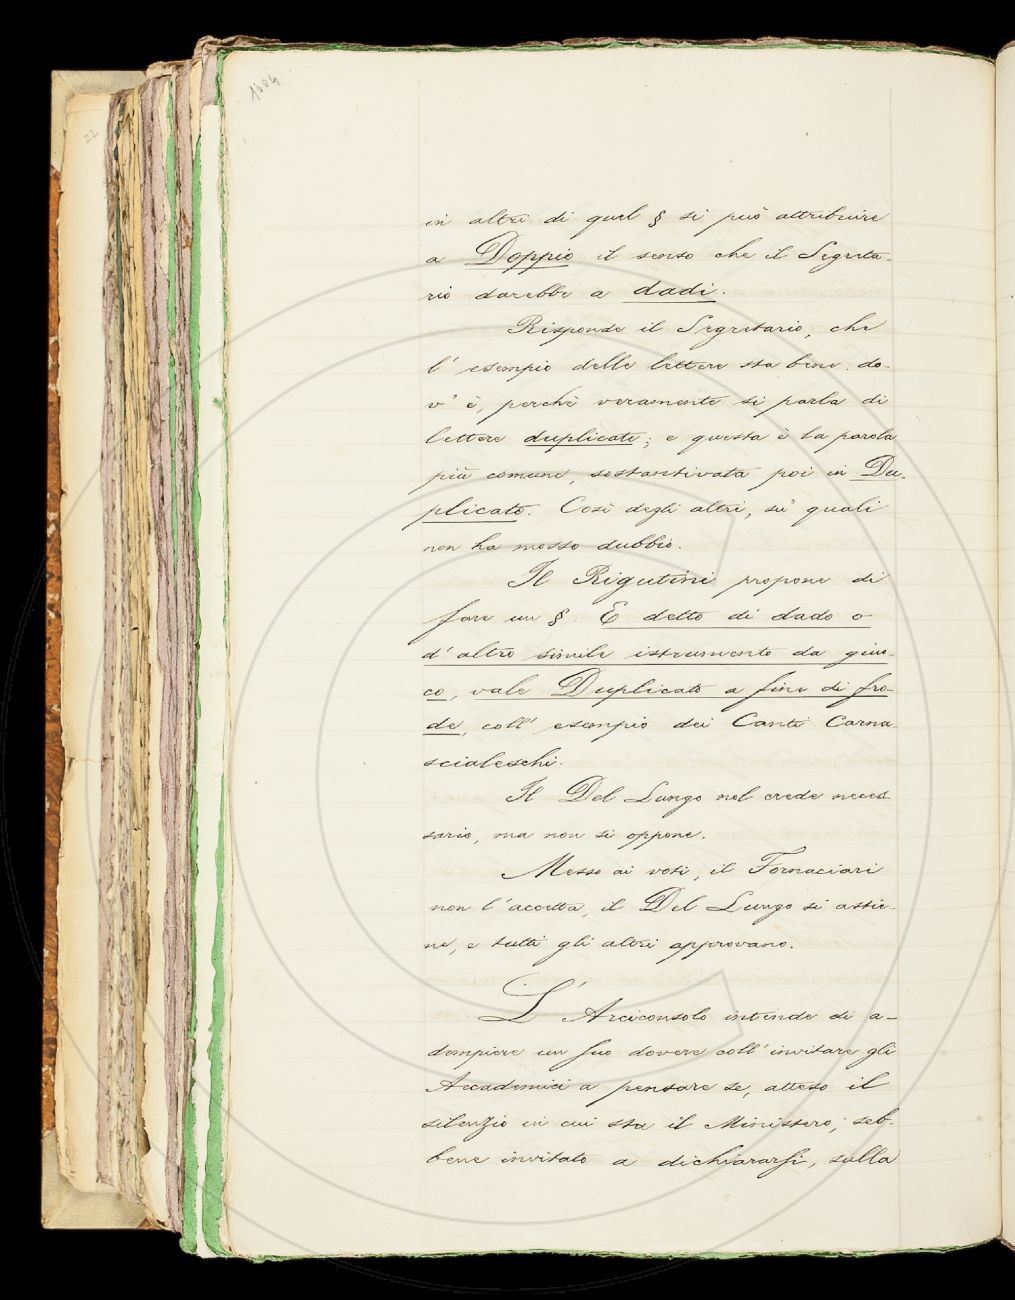 in altri di quel § si può attribuire
a Doppio il senso che il Segreta-
rio darebbe a dadi.
Risponde il Segretario, che
l' esempio delle lettere sta bene do-
v' è, perchè veramente si parla di
lettere duplicate; e questa è la parola
più comune, sostantivata poi in Du-
plicato. Così degli altri, su' quali
non ha mosso dubbio.
Il Rigutini propone di
fare un § È detto di dado o
d' altro simile istrumento da giuo-
co, vale Duplicato a fine di fro-
de, coll' esempio dei Canti Carna-
scialeschi.
Il Del Lungo nol crede neces-
sario, ma non si oppone.
Messo ai voti, il Fornaciari
non l' accetta, il Del Lungo si astie-
ne, e tutti gli altri approvano.
L' Arciconsolo intende di a-
dempiere un suo dovere coll' invitare gli
Accademici a pensare se, atteso il
silenzio in cui sta il Ministero, seb-
bene invitato a dichiararsi, sulla